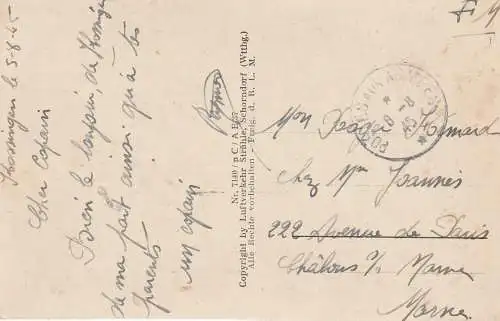 Trossingen le 5-8-45
Cher Copain
Bien le bonjour, de Trossingen
de ma part ainsi qu'à tes
parents
un copain
Nr. 7140 / p C / A E 57
Copyright by Luftverkehr Strähle, Schorndorf (Wttbg.)
Alle Rechte vorbehalten - Freig. d. R. L. M.
F. M
POSTE AUX ARMÉES
8 - 8
45
Mon Roger
Chez Mr Joannès
222 Avenue de Paris
Châlons s/ Marne
Marne